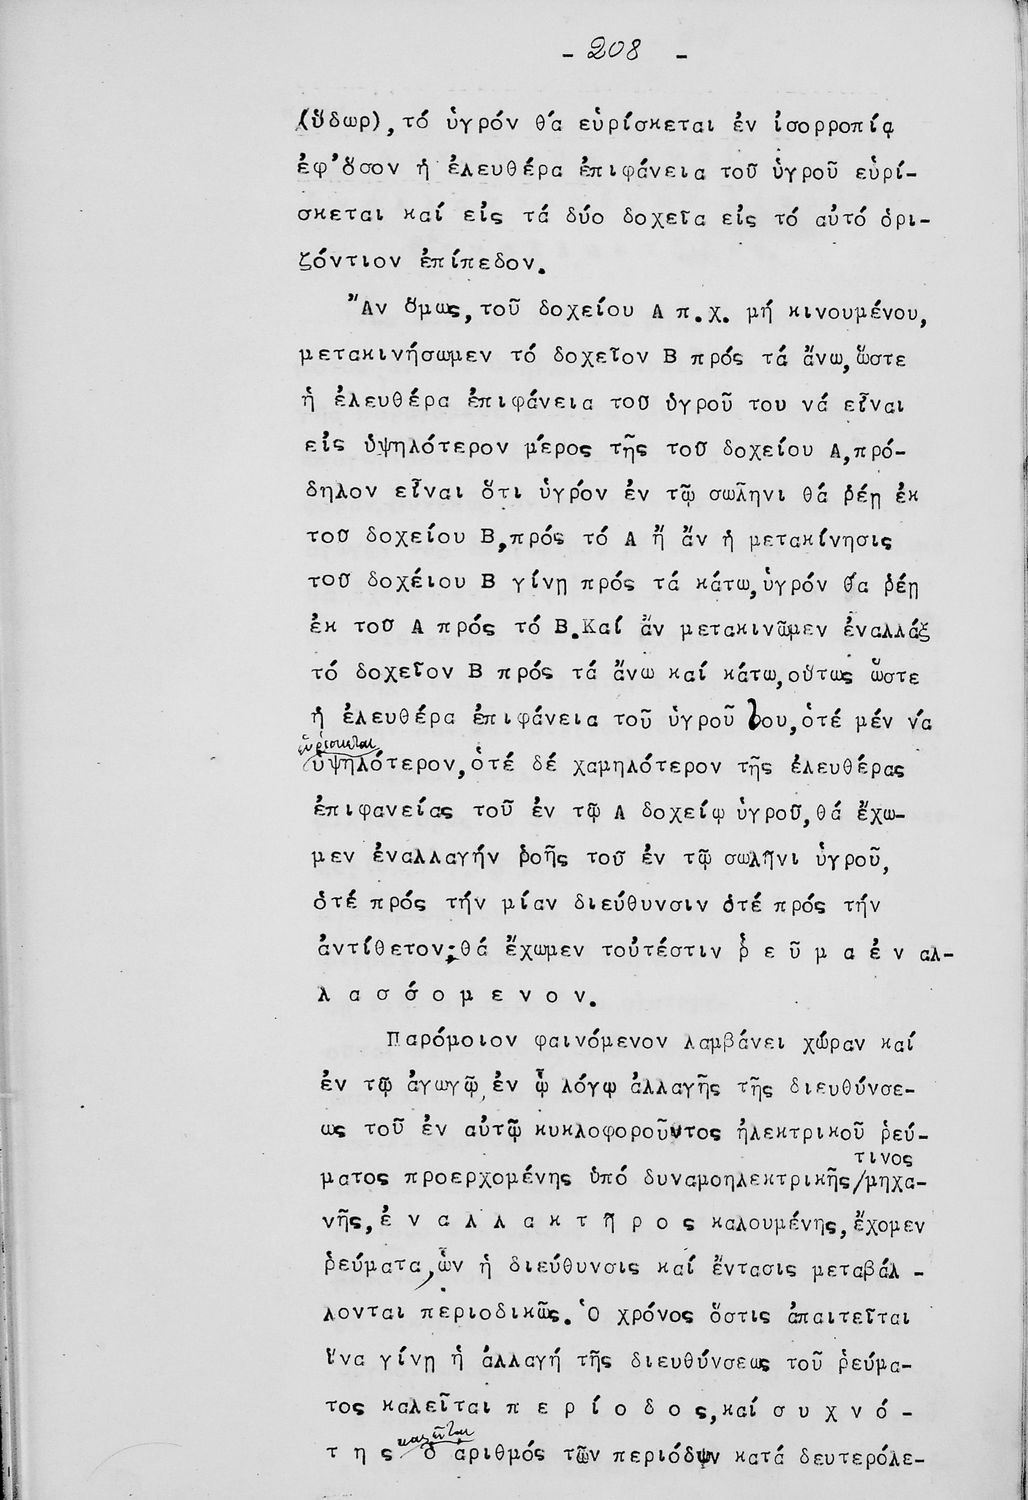 - 208 -
(ὕδωρ), τό ὑγρόν θά εὑρίσκεται ἐν ἰσορροπίᾳ
ἐφ' ὅσον ἡ ἐλευθέρα ἐπιφάνεια τοῦ ὑγροῦ εὑρί-
σκεται καί εἰς τά δύο δοχεῖα εἰς τό αὐτό ὁρι-
ζόντιον ἐπίπεδον.
Ἄν ὅμως, τοῦ δοχείου Α π.χ. μή κινουμένου,
μετακινήσωμεν τό δοχεῖον Β πρός τά ἄνω, ὥστε
ἡ ἐλευθέρα ἐπιφάνεια τοῦ ὑγροῦ του νά εἶναι
εἰς ὑψηλότερον μέρος τῆς τοῦ δοχείου Α, πρό-
δηλον εἶναι ὅτι ὑγρόν ἐν τῷ σωλῆνι θά ῥέῃ ἐκ
τοῦ δοχείου Β, πρός τό Α ἤ ἄν ἡ μετακίνησις
τοῦ δοχέιου Β γίνῃ πρός τά κάτω, ὑγρόν θά ῥέῃ
ἐκ τοῦ Α πρός τό Β. Καί ἄν μετακινῶμεν ἐναλλάξ
τό δοχεῖον Β πρός τά ἄνω καί κάτω, οὕτως ὥστε
ἡ ἐλευθέρα ἐπιφάνεια τοῦ ὑγροῦ του, ὁτέ μέν νά
εὑρίσκεται
ὑψηλότερον, ὁτέ δέ χαμηλότερον τῆς ἐλευθέρας
ἐπιφανείας τοῦ ἐν τῷ Α δοχείῳ ὑγροῦ, θά ἔχω-
μεν ἐναλλαγήν ῥοῆς τοῦ ἐν τῷ σωλῆνι ὑγροῦ,
ὁτέ πρός τήν μίαν διεύθυνσιν ὁτέ πρός τήν
ἀντίθετον; θά ἔχωμεν τοὐτέστιν ῥ ε ῦ μ α ἐ ν αλ-
λ α σ σ ό μ ε ν ο ν.
Παρόμοιον φαινόμενον λαμβάνει χώραν καί
ἐν τῷ ἀγωγῷ, ἐν ᾧ λόγῳ ἀλλαγῆς τῆς διευθύνσε-
ως τοῦ ἐν αὐτῷ κυκλοφοροῦντος ἠλεκτρικοῦ ῥεύ-
τινος
ματος προερχομένης ὑπό δυναμοηλεκτρικῆς/μηχα-
νῆς, ἐ ν α λ λ α κ τ ῆ ρ ο ς καλουμένης, ἔχομεν
ῥεύματα, ὧν ἡ διεύθυνσις καί ἔντασις μεταβάλ -
λονται περιοδικῶς. Ὁ χρόνος ὅστις ἀπαιτεῖται
ἵνα γίνῃ ἡ ἀλλαγή τῆς διευθύνσεως τοῦ ῥεύμα-
τος καλεῖται π ε ρ ί ο δ ο ς, καί σ υ χ ν ό -
καλεῖται
τ η ς ὁ ἀριθμός τῶν περιόδων κατά δευτερόλε-